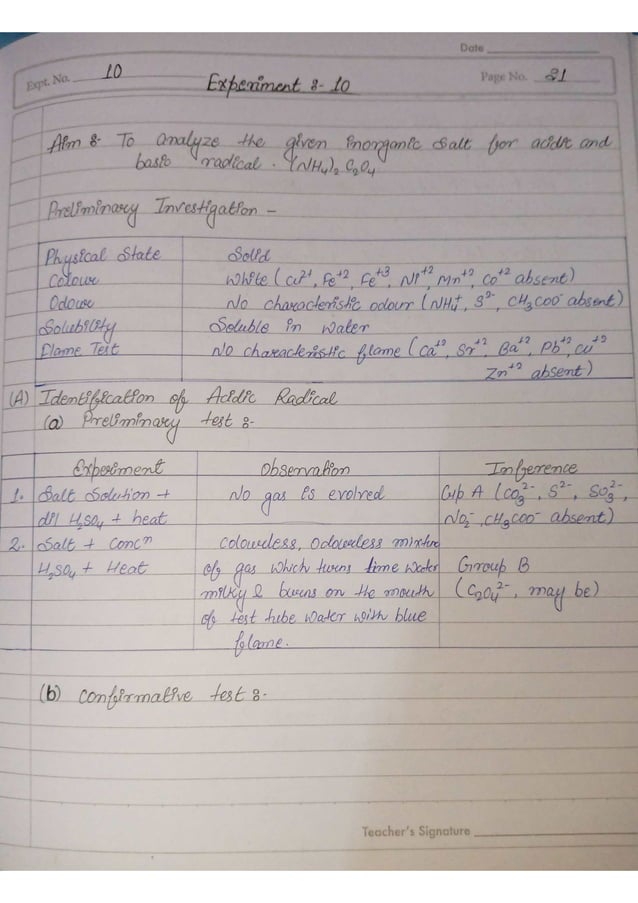 Date
Expt. No. 10
Experiment :- 10
Page No. 21
Aim :- To analyze the given inorganic salt for acidic and
basic radical. (NH₄)₂ C₂O₄
Preliminary Investigation -
Physical State Solid
Colour White (Cu²⁺, Fe⁺², Fe⁺³, Ni⁺², Mn⁺², Co⁺² absent)
Odour No characteristic odour (NH₄⁺, S²⁻, CH₃COO⁻ absent)
Solubility Soluble in water
Flame Test No characteristic flame (Ca⁺², Sr⁺², Ba⁺², Pb⁺², Cu⁺²
Zn⁺² absent)
(A) Identification of Acidic Radical
(a) Preliminary test :-
Experiment Observation Inference
1. Salt Solution + No gas is evolved Grp A (CO₃²⁻, S²⁻, SO₃²⁻,
dil H₂SO₄ + heat NO₂⁻, CH₃COO⁻ absent)
2. Salt + Concⁿ Colourless, Odourless mixture
H₂SO₄ + Heat of gas which turns lime water Group B
milky & burns on the mouth (C₂O₄²⁻, may be)
of test tube water with blue
flame.
(b) Confirmative test :-
Teacher's Signature